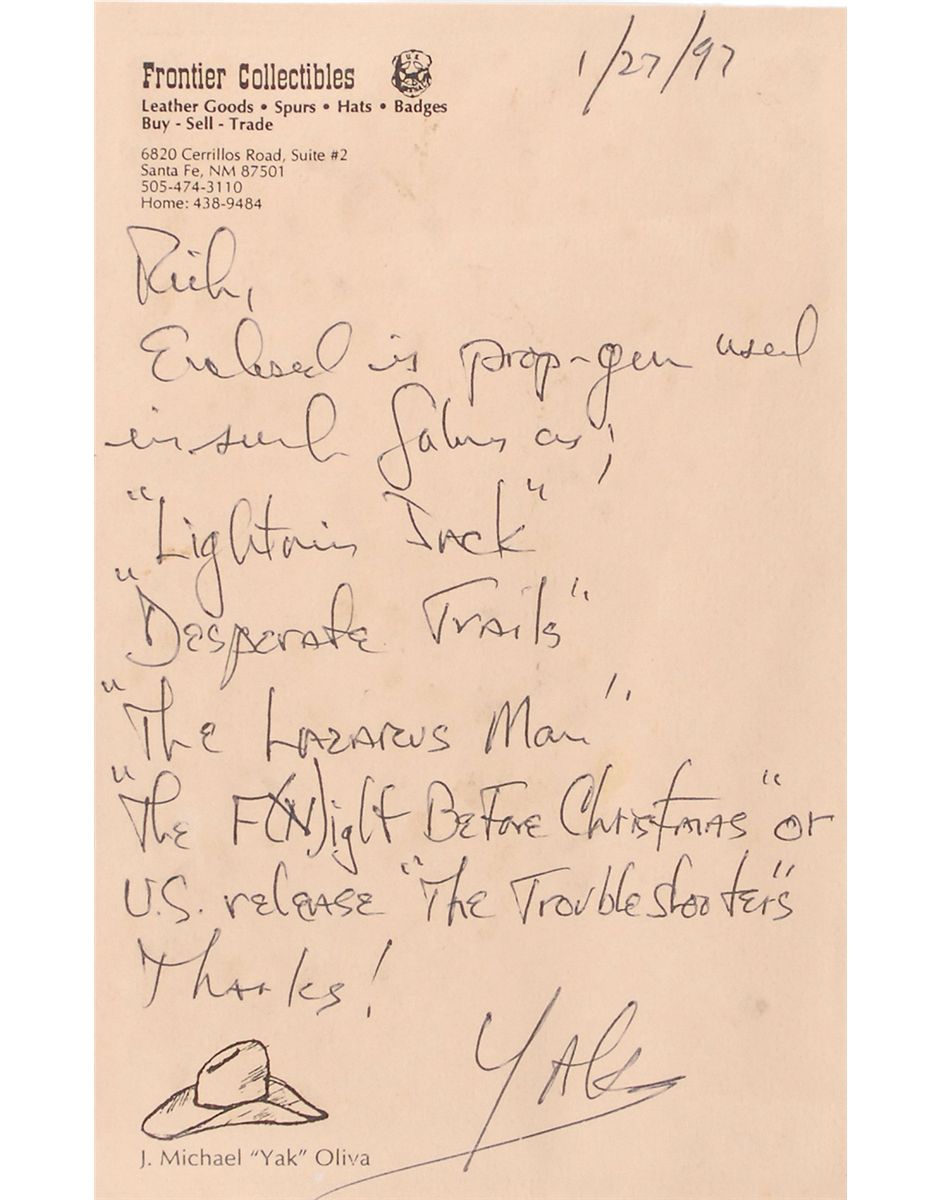 1/27/97
Frontier Collectibles
Leather Goods • Spurs • Hats • Badges
Buy - Sell - Trade
6820 Cerrillos Road, Suite #2
Santa Fe, NM 87501
505-474-3110
Home: 438-9484
Rich,
Enclosed is prop-gun used
in such films as;
"Lightnin Jack"
"Desperate Trails"
"The Lazarus Man"
"The F(N)ight Before Christmas" or
U.S. release "The Troubleshooters"
Thanks!
Yak
J. Michael "Yak" Oliva